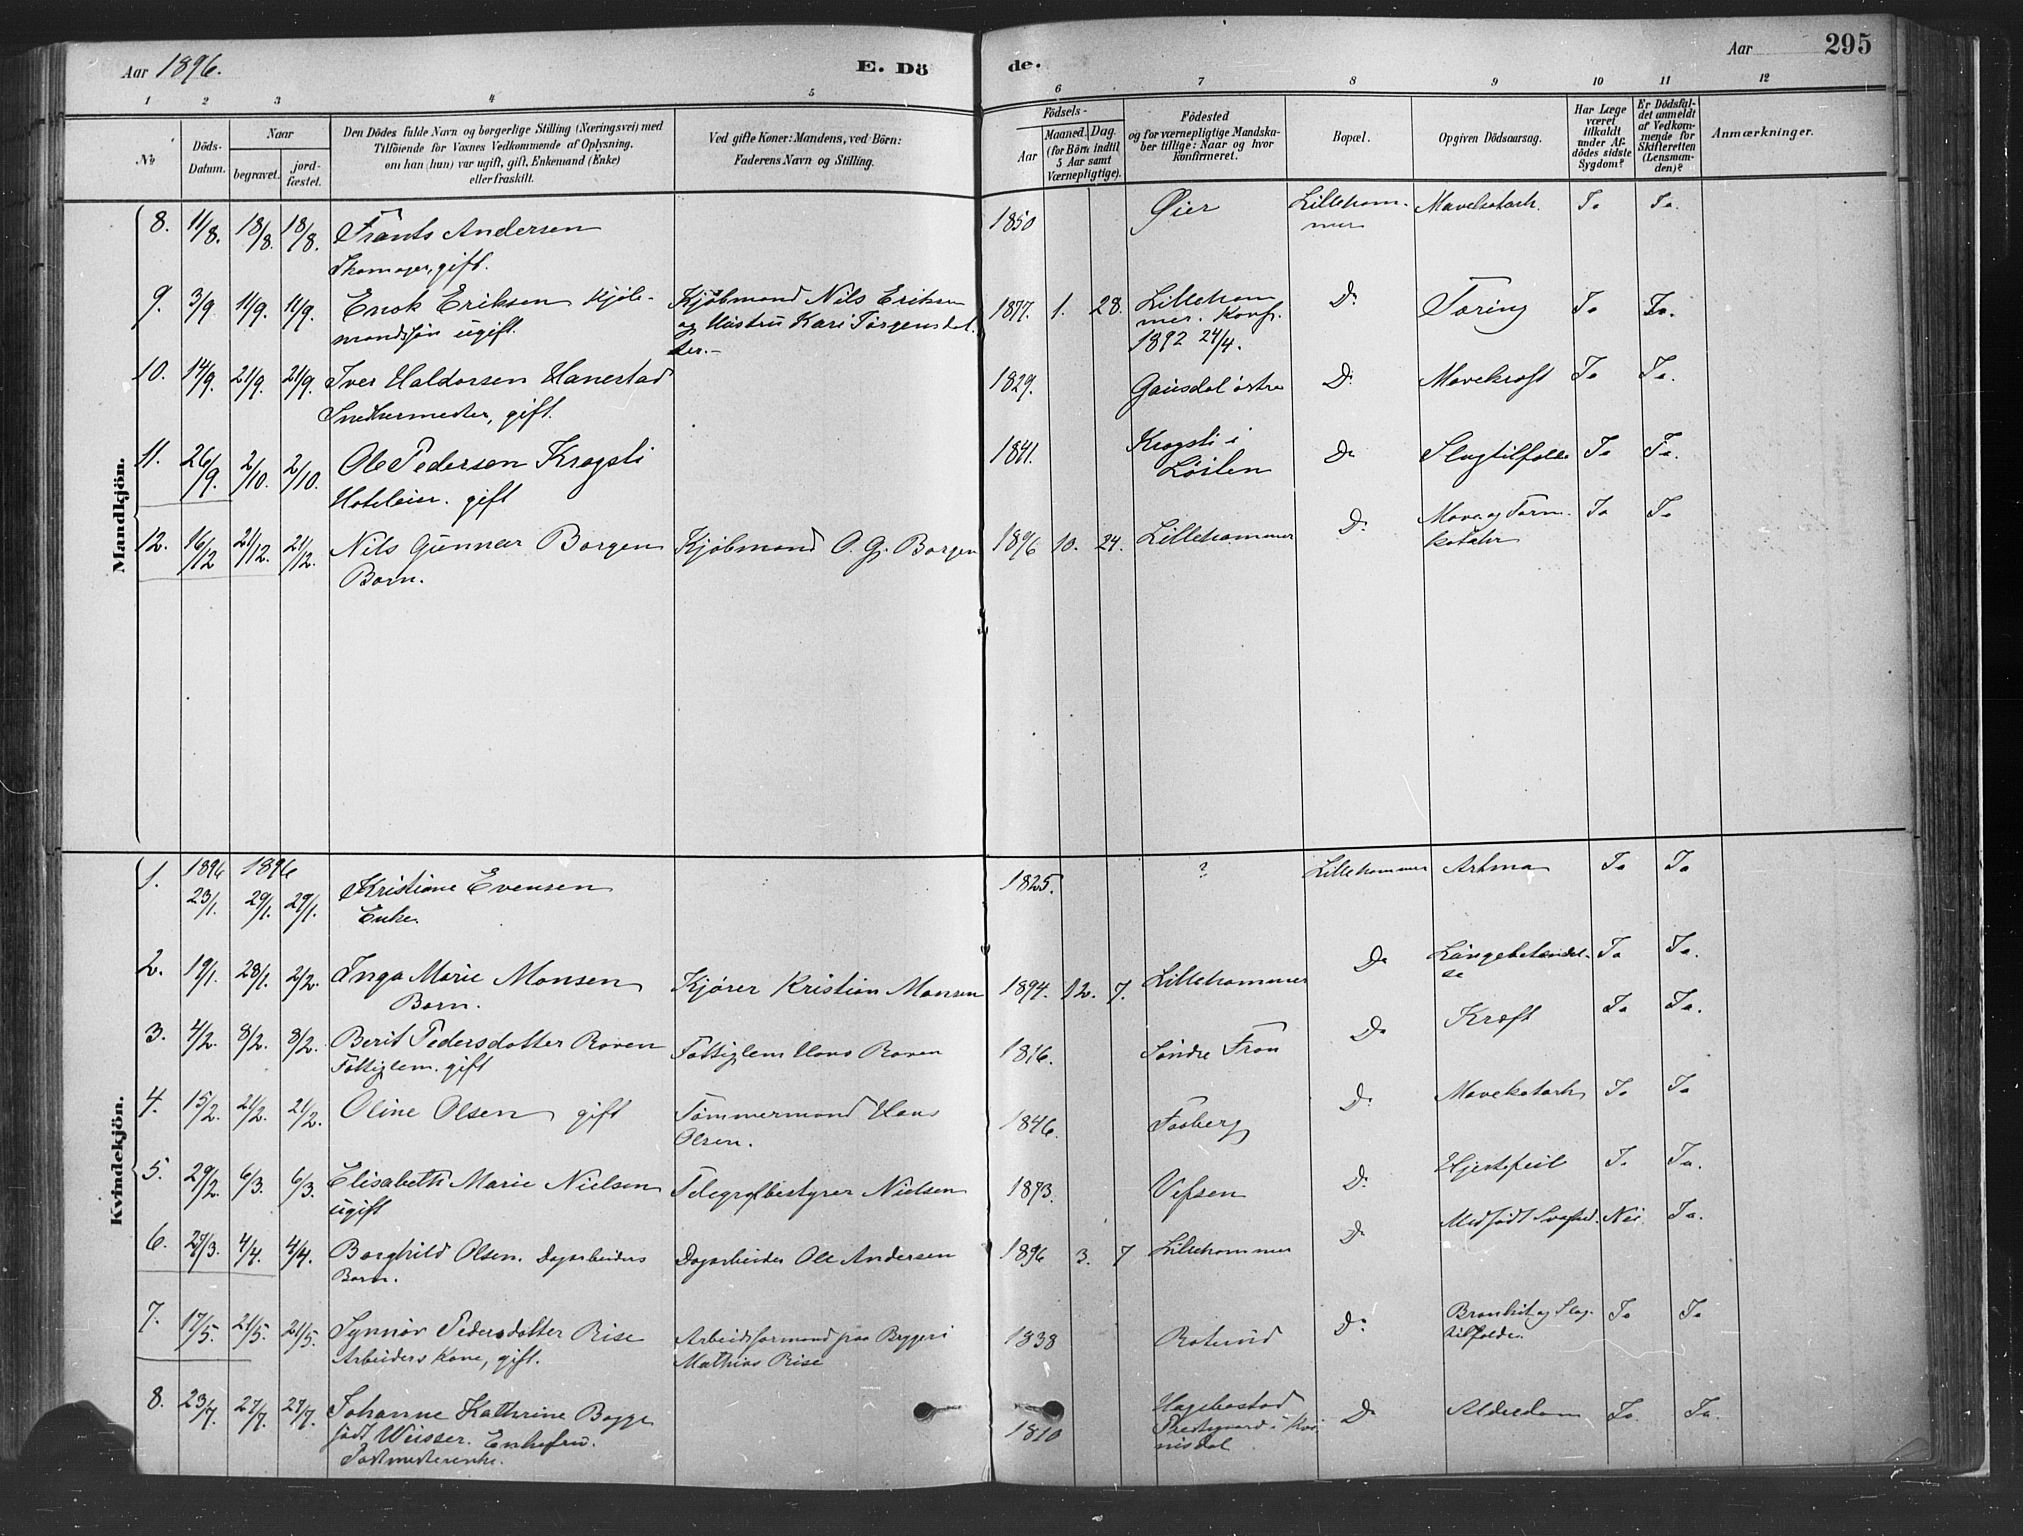 Aar 1896.
E. Dö
de.
Aar
295
1 2 3 4 5 6 7 8 9 10 11 12
No
Döds-
Datum.
Naar
begravet.
jord-
fæstet.
Den Dödes fulde Navn og borgerlige Stilling (Næringsvei) med
Tilföiende for Voxnes Vedkommende af Oplysning,
om han (hun) var ugift, gift, Enkemand (Enke)
eller fraskilt.
Ved gifte Koner: Mandens, ved Börn:
Faderens Navn og Stilling.
Födsels-
Aar
Maaned. Dag.
(for Börn indtil
5 Aar samt
Værnepligtige).
Födested
og for værnepligtige Mandska-
ber tillige: Naar og hvor
konfirmeret.
Bopæl.
Opgiven Dödsaarsag.
Har Læge
været
tilkaldt
under Af-
dödes sidste
Sygdom?
Er Dödsfal-
det anmeldt
af Vedkom-
mende for
Skifteretten
(Lensman-
den)?
Anmærkninger.
Mandkjön.
8. 11/8. 18/8. 18/8. Frants Andersen 1850 Øier Lilleham- Mavekatarh. Ja Ja.
mer
Skomager, gift.
9. 3/9 11/9. 11/9. Enok Eriksen Kjøb- Kjøbmand Nils Eriksen 1877. 1. 28. Lilleham Do Tæring Ja Ja.
mandssøn ugift. og Hustru Kari Jørgensdat- mer. Konf.
ter.- 1892 24/4.
10. 14/9. 21/9. 21/9. Iver Haldorsen Hanestad 1829. Gausdal østre Do Mavekræft Ja Ja.
Snedkermester, gift.
11. 26/9. 2/10. 2/10. Ole Pedersen Krogsti 1841. Krogsti i Do Slagtilfælde Ja Ja.
Løiten
Hoteleier. gift
12. 16/12 21/12. 21/12. Nils Gunnar Borgen Kjøbmand O. G. Borgen 1896 10. 24. Lillehammer Do Mave og Tarm- Ja Ja
katahr
Barn.
Kvindekjön.
1. 1896 1896
23/1. 29/1. 29/1. Kristiane Evensen 1825. ? Lillehammer Astma Ja Ja
Enke.
2. 19/1. 28/1. 2/2. Inga Marie Monsen Kjører Kristian Monsen 1894. 12. 7. Lillehammer Do Lungebetændel- Ja Ja.
se
Barn.
3. 4/2. 8/2. 8/2. Berit Pedersdotter Roven Fattiglem Hans Roven 1816. Søndre Fron Do Kræft Ja Ja.
Fattiglem. gift
4. 15/2. 21/2. 21/2. Oline Olsen gift Tømmermand Hans 1846. Faaberg Do Mavekatarh Ja Ja
Olsen.
5. 29/2. 6/3. 6/3. Elisabeth Marie Nielsen Telegrafbestyrer Nielsen 1873. Vefsen Do Hjertefeil Ja Ja.
ugift
6. 27/3. 4/4. 4/4. Borghild Olsen. Dagarbeiders Dagarbeider Ole Andersen 1896 3. 7 Lillehammer Do Medfødt Svaghed. Nei Ja.
Barn.
7. 17/5. 21/5. 21/5. Synnøv Pedersdotter Rise Arbeidsformand paa Bryggeri 1838 Do Bronkit og Slag- Ja Ja
tilfælde.
Arbeiders Kone, gift. Mathias Rise
8. 23/7. 27/7. 27/7. Johanne Kathrine Bagge 1810 Hægebostad Do Alderdom Ja. Ja.
født Weisser. Enkefru. Prestegaard i Kvi
Postmesterenke. nisdal